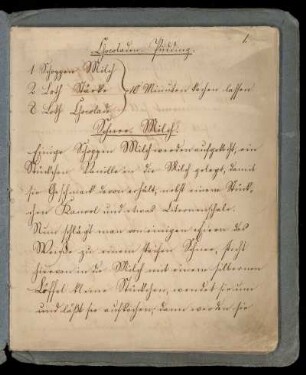 1
Chocoladen-Pudding.
1 Schoppen Milch
2 Loth Stärke } 10 Minuten kochen lassen
8 Loth Chocolade
Schnee-Milch.
Einige Schoppen Milch werden aufgekocht, ein
Stückchen Vanille in die Milch gelegt, damit
sie Geschmack davon erhält, nebst einem Stück-
chen Kaneel und etwas Citronenschale.
Nun schlägt man von einigen Eiern das
Weiße zu einem steifen Schnee, sticht
hiervon in die Milch mit einem silbernen
Löffel kleine Stückchen, wendet sie um
und läßt sie aufkochen, dann werden sie